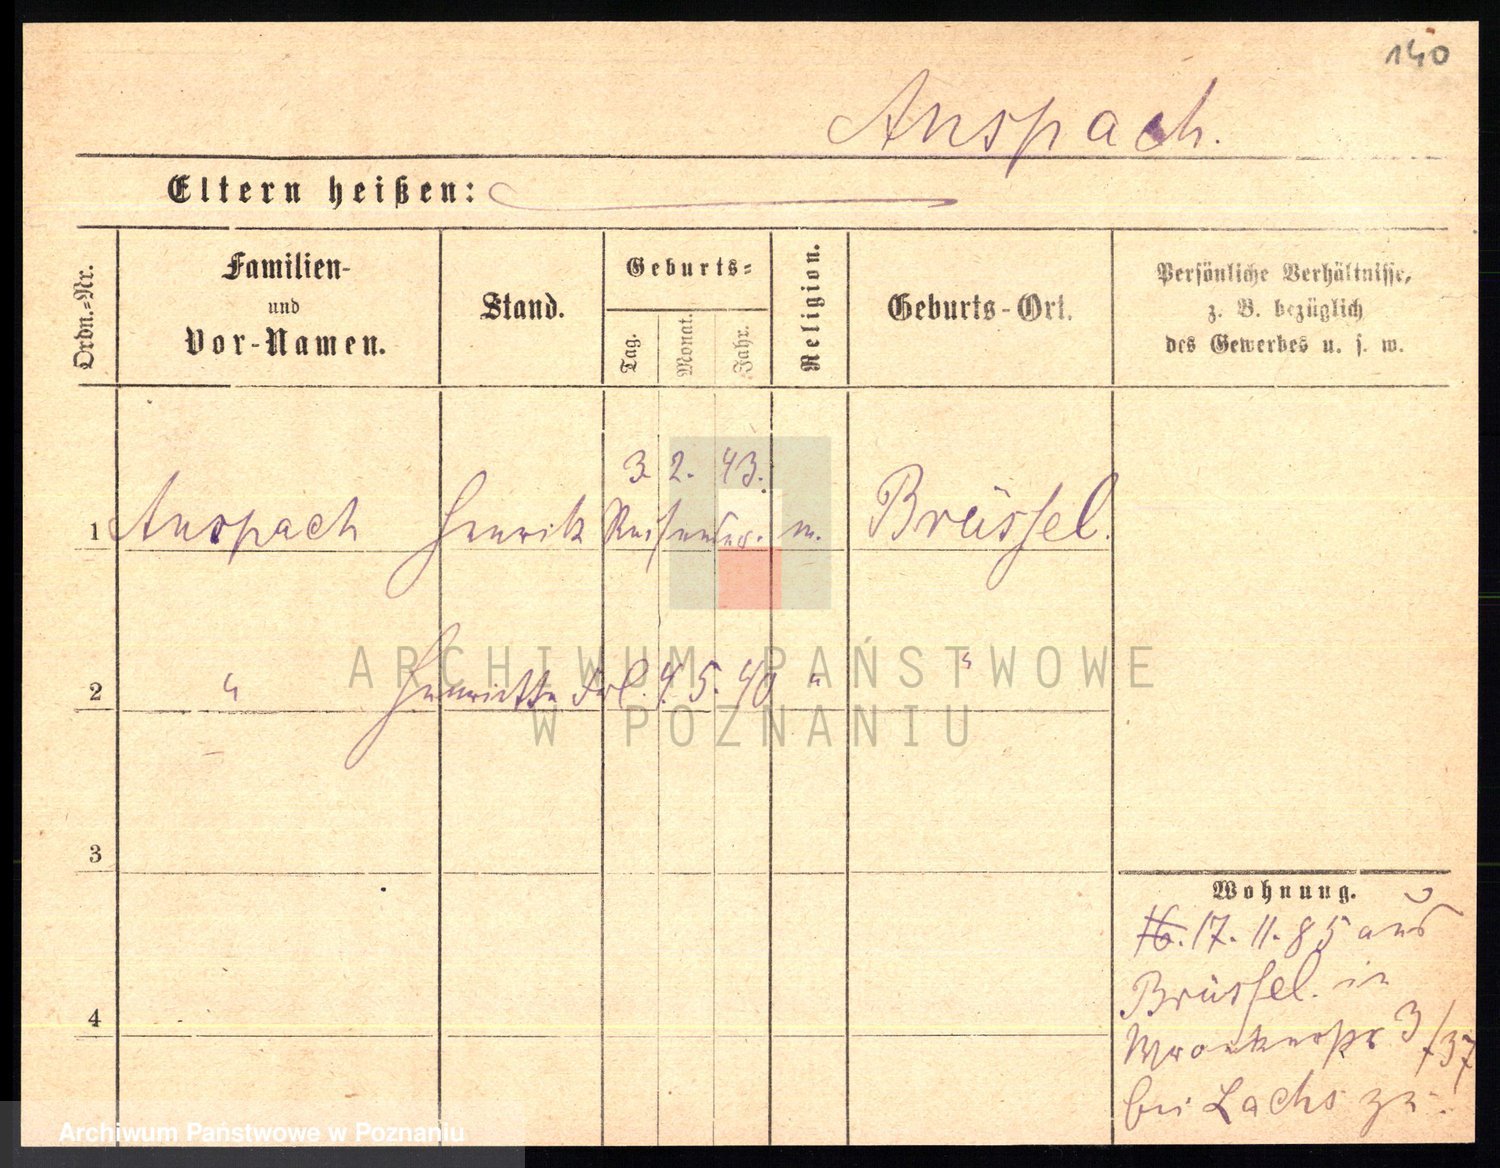 140
Anspach.
Eltern heißen:
Ordn.-Nr.
Familien-
und
Vor-Namen.
Stand.
Geburts-
Tag.
Monat.
Jahr.
Religion.
Geburts-Ort.
Persönliche Verhältnisse,
z. B. bezüglich
des Gewerbes u. s. w.
3. 2. 43.
1 Anspach Henrik Reisender. m. Brüssel.
2 " Henriette Frl. 4. 5. 40 " "
3
4
Wohnung.
16. 17. 11. 85 aus
Brüssel. in
Wronkerstr 3/37
bei Lachs zu.
ARCHIWUM PAŃSTWOWE
W POZNANIU
Archiwum Państwowe w Poznaniu